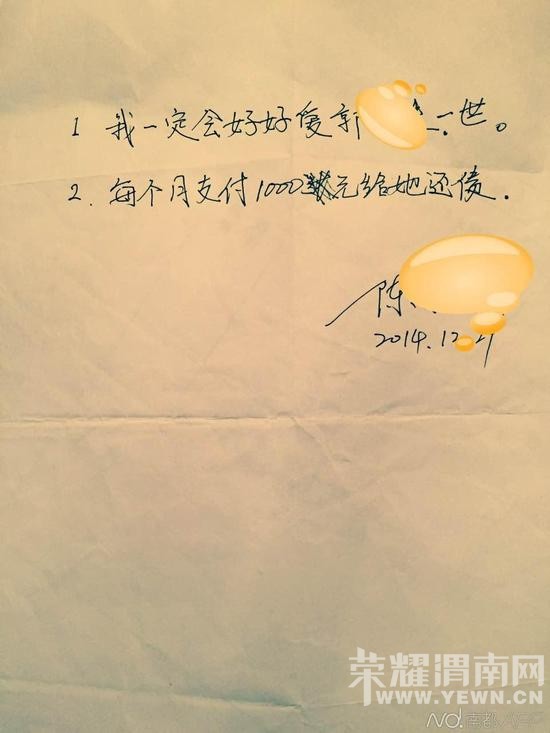 1 我一定会好好爱郭 一世。
2. 每个月支付1000元给她还债.
陈
2014.12.
荣耀渭南网
WWW.YEWN.CN
ND.南都APP